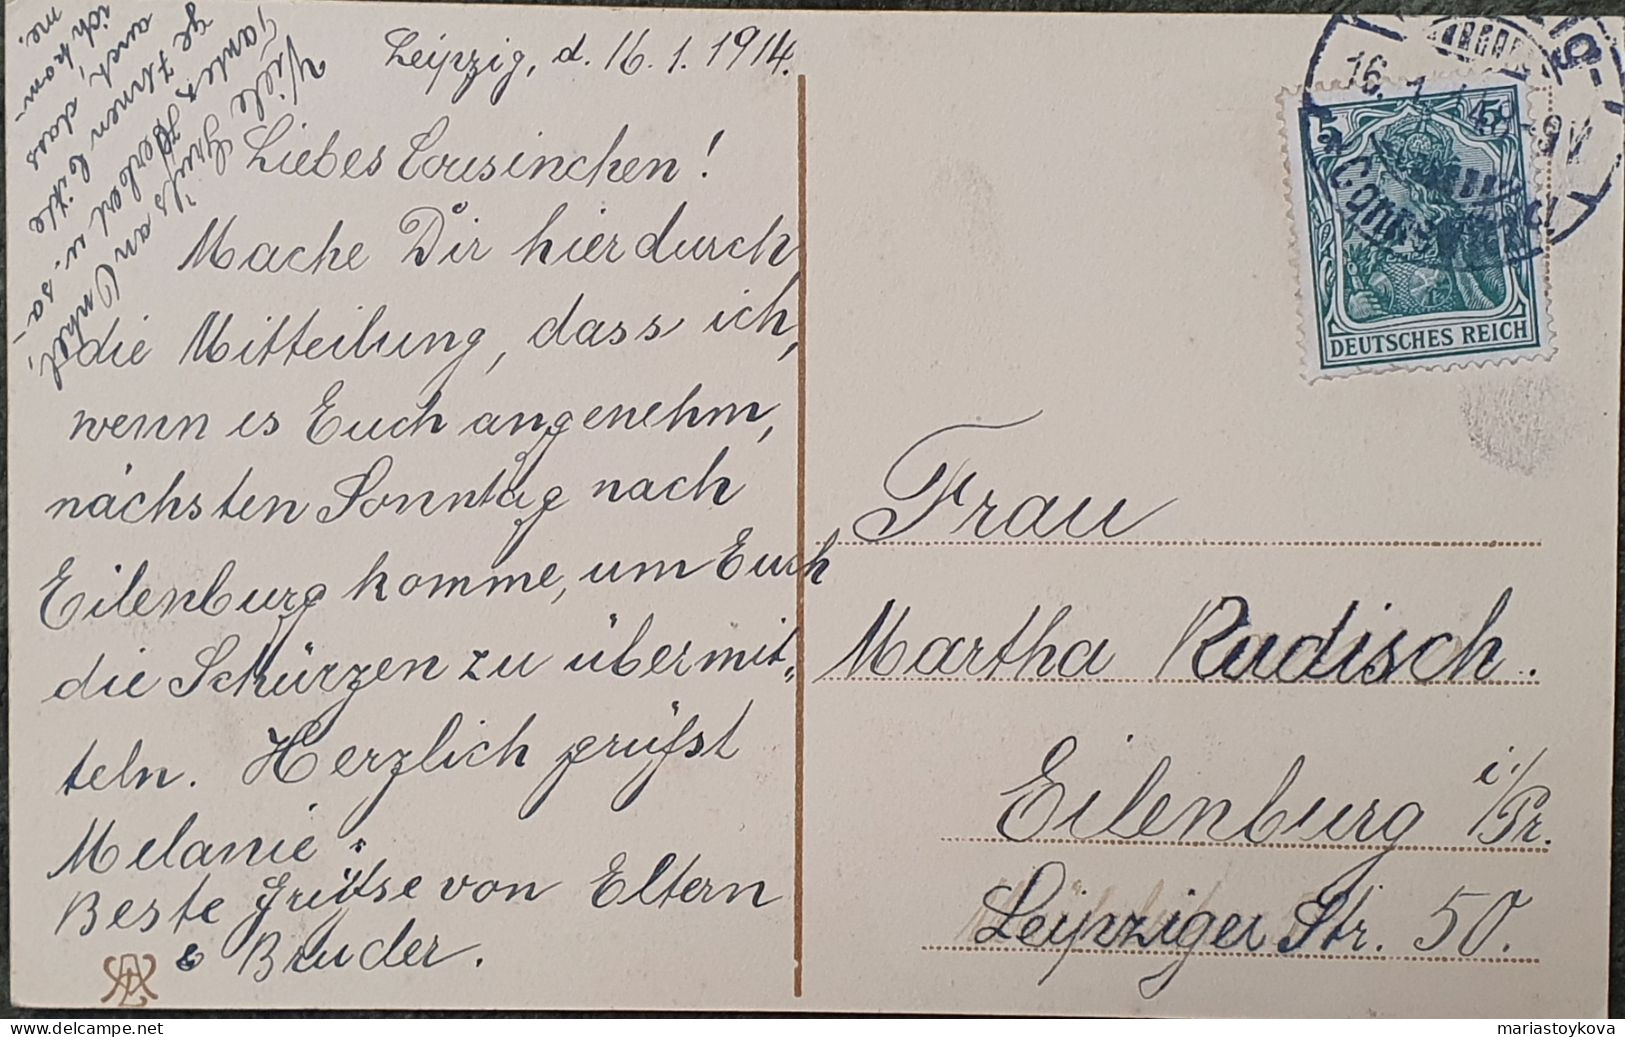 Leipzig, d. 16. 1. 1914.
Liebes Cousinchen!
Mache Dir hierdurch
die Mitteilung, dass ich,
wenn es Euch angenehm,
nächsten Sonntag nach
Eilenburg komme, um Euch
die Schürzen zu übermit-
teln. Herzlich grüßt
Melanie.
Beste Grüße von Eltern
& Bruder.
Viele Grüße an Onkel,
Tante, Herbert u. sa-
ge Ihnen bitte
auch, dass
ich kom-
me.
16. 1.
DEUTSCHES REICH
5
5
Frau
Martha Radisch.
Eilenburg i/Pr.
Leipziger Str. 50.
mariastoykova